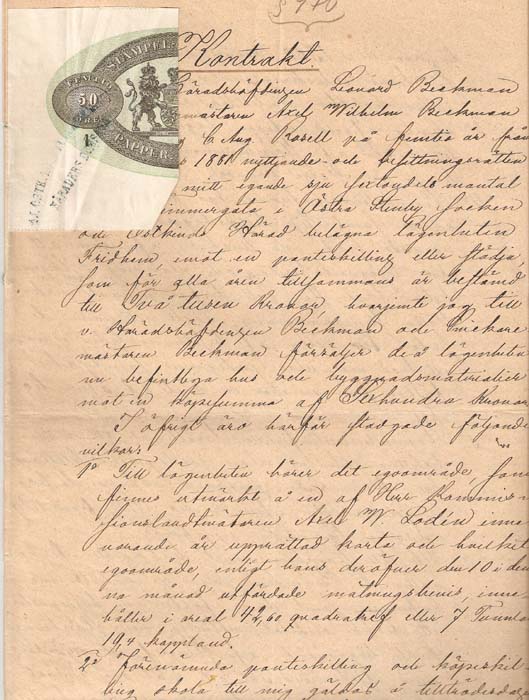 § 970
STÄMPEL
50
ÖRE
PAPPER
Kontrakt.
Häradshöfdingen Leonard Beckman
mästaren Axel Wilhelm Beckman
C Aug Rosell på femtio år från
1881 nyttjande- och besittningsrätten
mitt egande sju sextondels mantal
i Östra Stenby socken
och Östkinds Härad belägna lägenheten
Fridhem, emot en panteskilling eller städja,
som för alla åren tillsammans är bestämd
till Två tusen Kronor, hvarjemte jag till
v. Häradshöfdingen Beckman och
mästaren Beckman försäljer de å lägenheten
nu befintliga hus och byggnadsmaterialier
mot en köpesumma af Sexhundra Kronor
I öfrigt äro härför stadgade följande
vilkor:
1o Till lägenheten hörer det egoområde, som
finnes utmärkt å en af Herr Kommis-
sionslandtmätaren Axel W. Lodén inne
varande år upprättad karta och hvilket
egoområde, enligt hans deröfver den 10 i den-
na månad utfärdade mätningsbevis, inne-
håller i areal 42,60 quadratref eller 7 Tunnland
19,4 kappland.
2o Förenämnda panteskilling och köpeskil-
ling skola till mig gäldas å tillträdesda